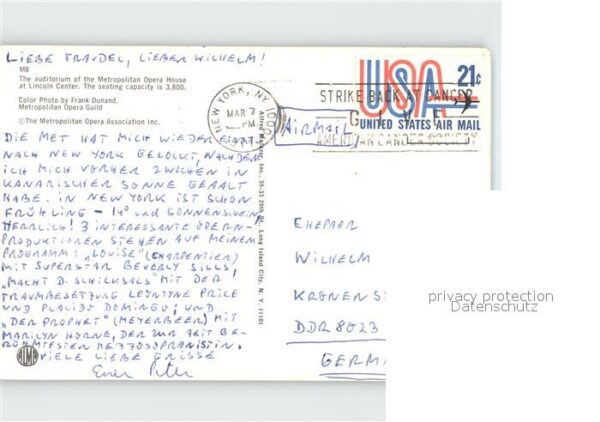 LIEBE TRAUDEL, LIEBER WILHELM!
M8
The auditorium of the Metropolitan Opera House
at Lincoln Center. The seating capacity is 3,800.
Color Photo by Frank Dunand,
Metropolitan Opera Guild
©The Metropolitan Opera Association Inc.
DIE MET HAT MICH WIEDER EINMAL
NACH NEW YORK GELOCKT, NACHDEM
ICH MICH VORHER 2 WOCHEN IN
KANARISCHER SONNE GEAALT
HABE. IN NEW YORK IST SCHON
FRÜHLING – 14° UND SONNENSCHEIN
HERRLICH! 3 INTERESSANTE OPERN-
PRODUKTIONEN STEHEN AUF MEINEM
PROGRAMM: „LOUISE" (CHARPENTIER)
MIT SUPERSTAR BEVERLY SILLS,
„MACHT D. SCHICKSALS" MIT DER
TRAUMBESETZUNG LEONTYNE PRICE
UND PLACIDO DOMINGO; UND
„DER PROPHET" (MEYERBEER) MIT
MARILYN HORNE, DER ZUR ZEIT BE-
RÜHMTESTEN MEZZOSOPRANISTIN.
VIELE LIEBE GRÜSSE
Euer Peter
Long Island City, N. Y. 11101
NEW YORK, NY 100
MAR 7
PM
1977
USA 21c
UNITED STATES AIR MAIL
STRIKE BACK AT CANCER
AMERICAN CANCER SOCIETY
AIRMAIL
EHEPAAR
WILHELM
KRONENS
DDR 8023
GERMA
privacy protection
Datenschutz